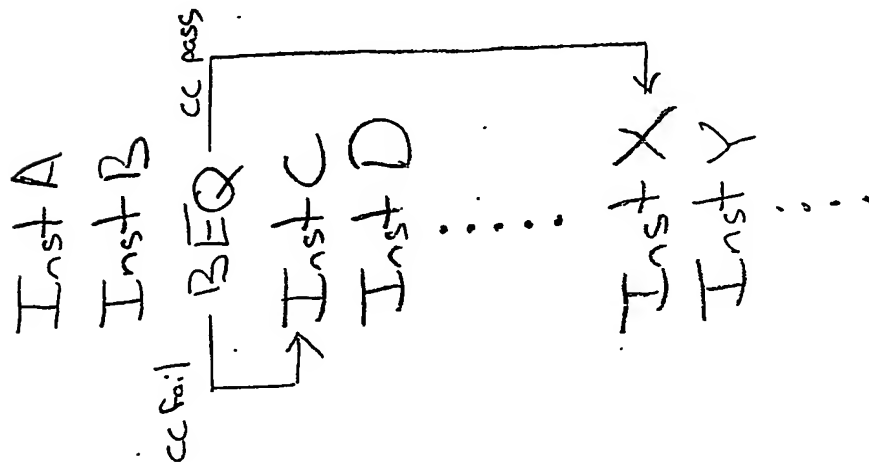 Inst A
Inst B
BEQ
cc pass
cc fail
Inst C
Inst D
.....
Inst X
Inst Y
....